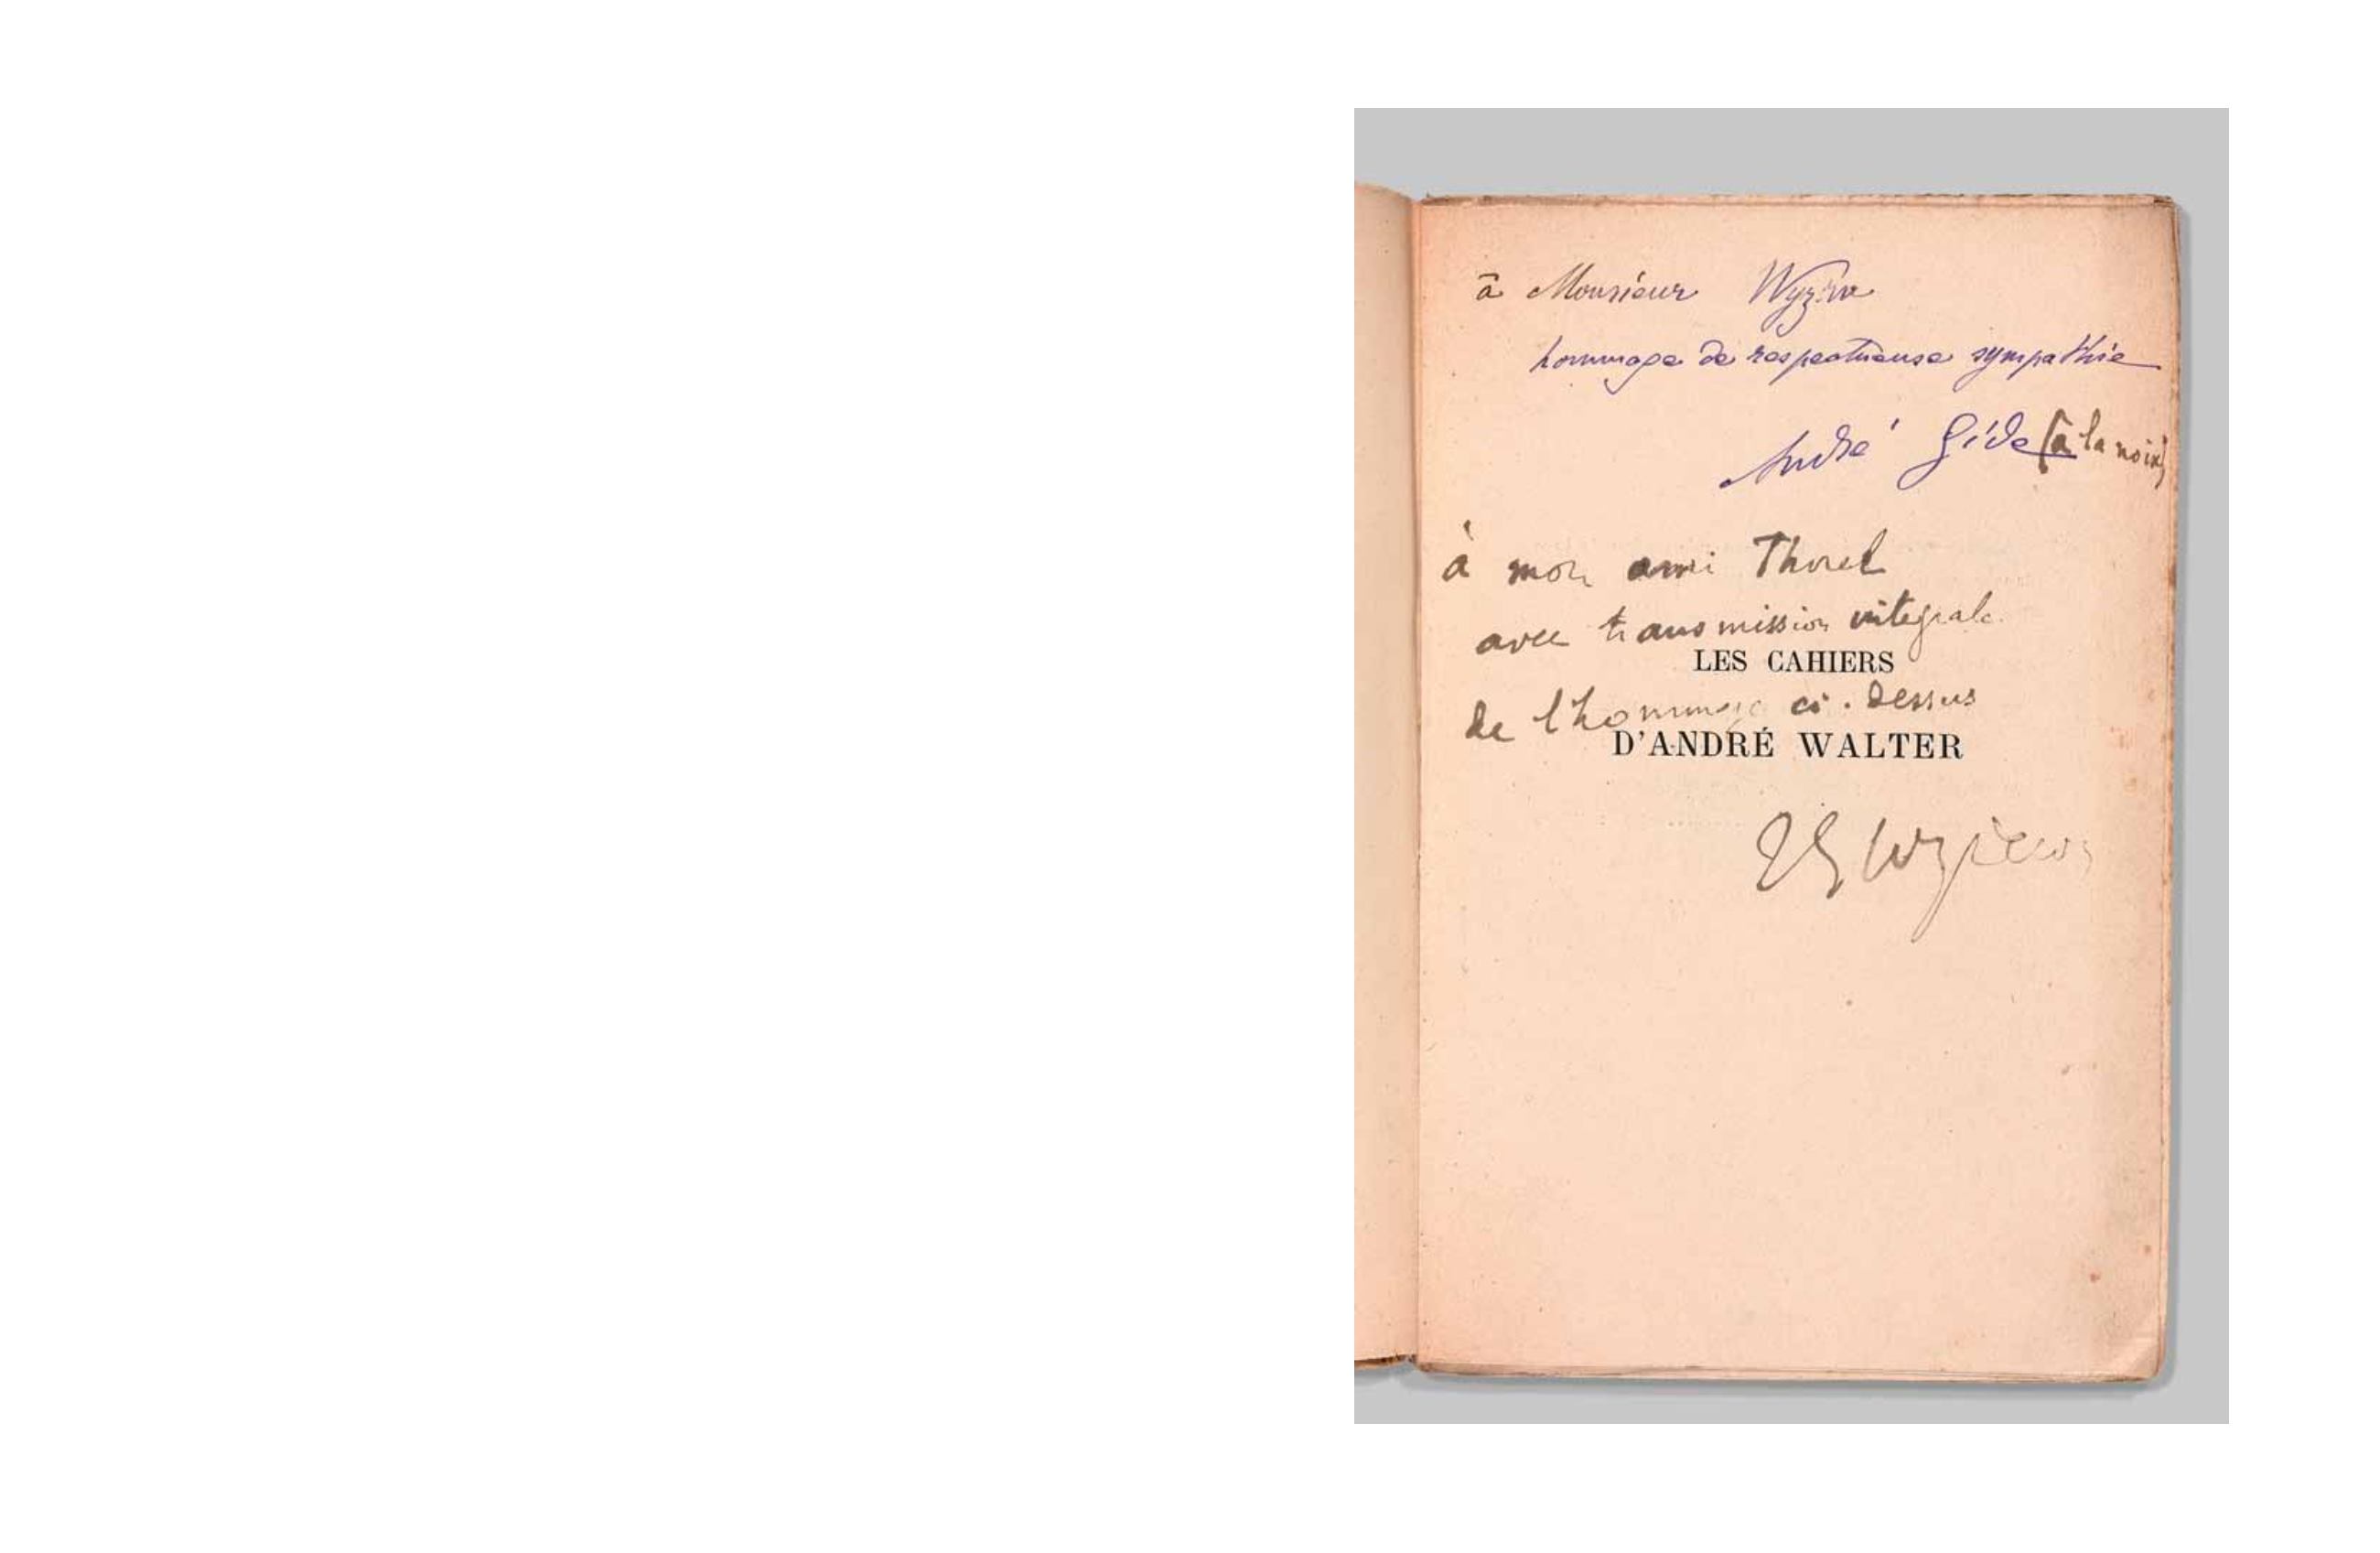 à Monsieur Wyzéva
hommage de respectueuse sympathie
André Gide (à la noix)
à mon ami Thorel
avec transmission intégrale
LES CAHIERS
de l'hommage ci-dessus
D'ANDRÉ WALTER